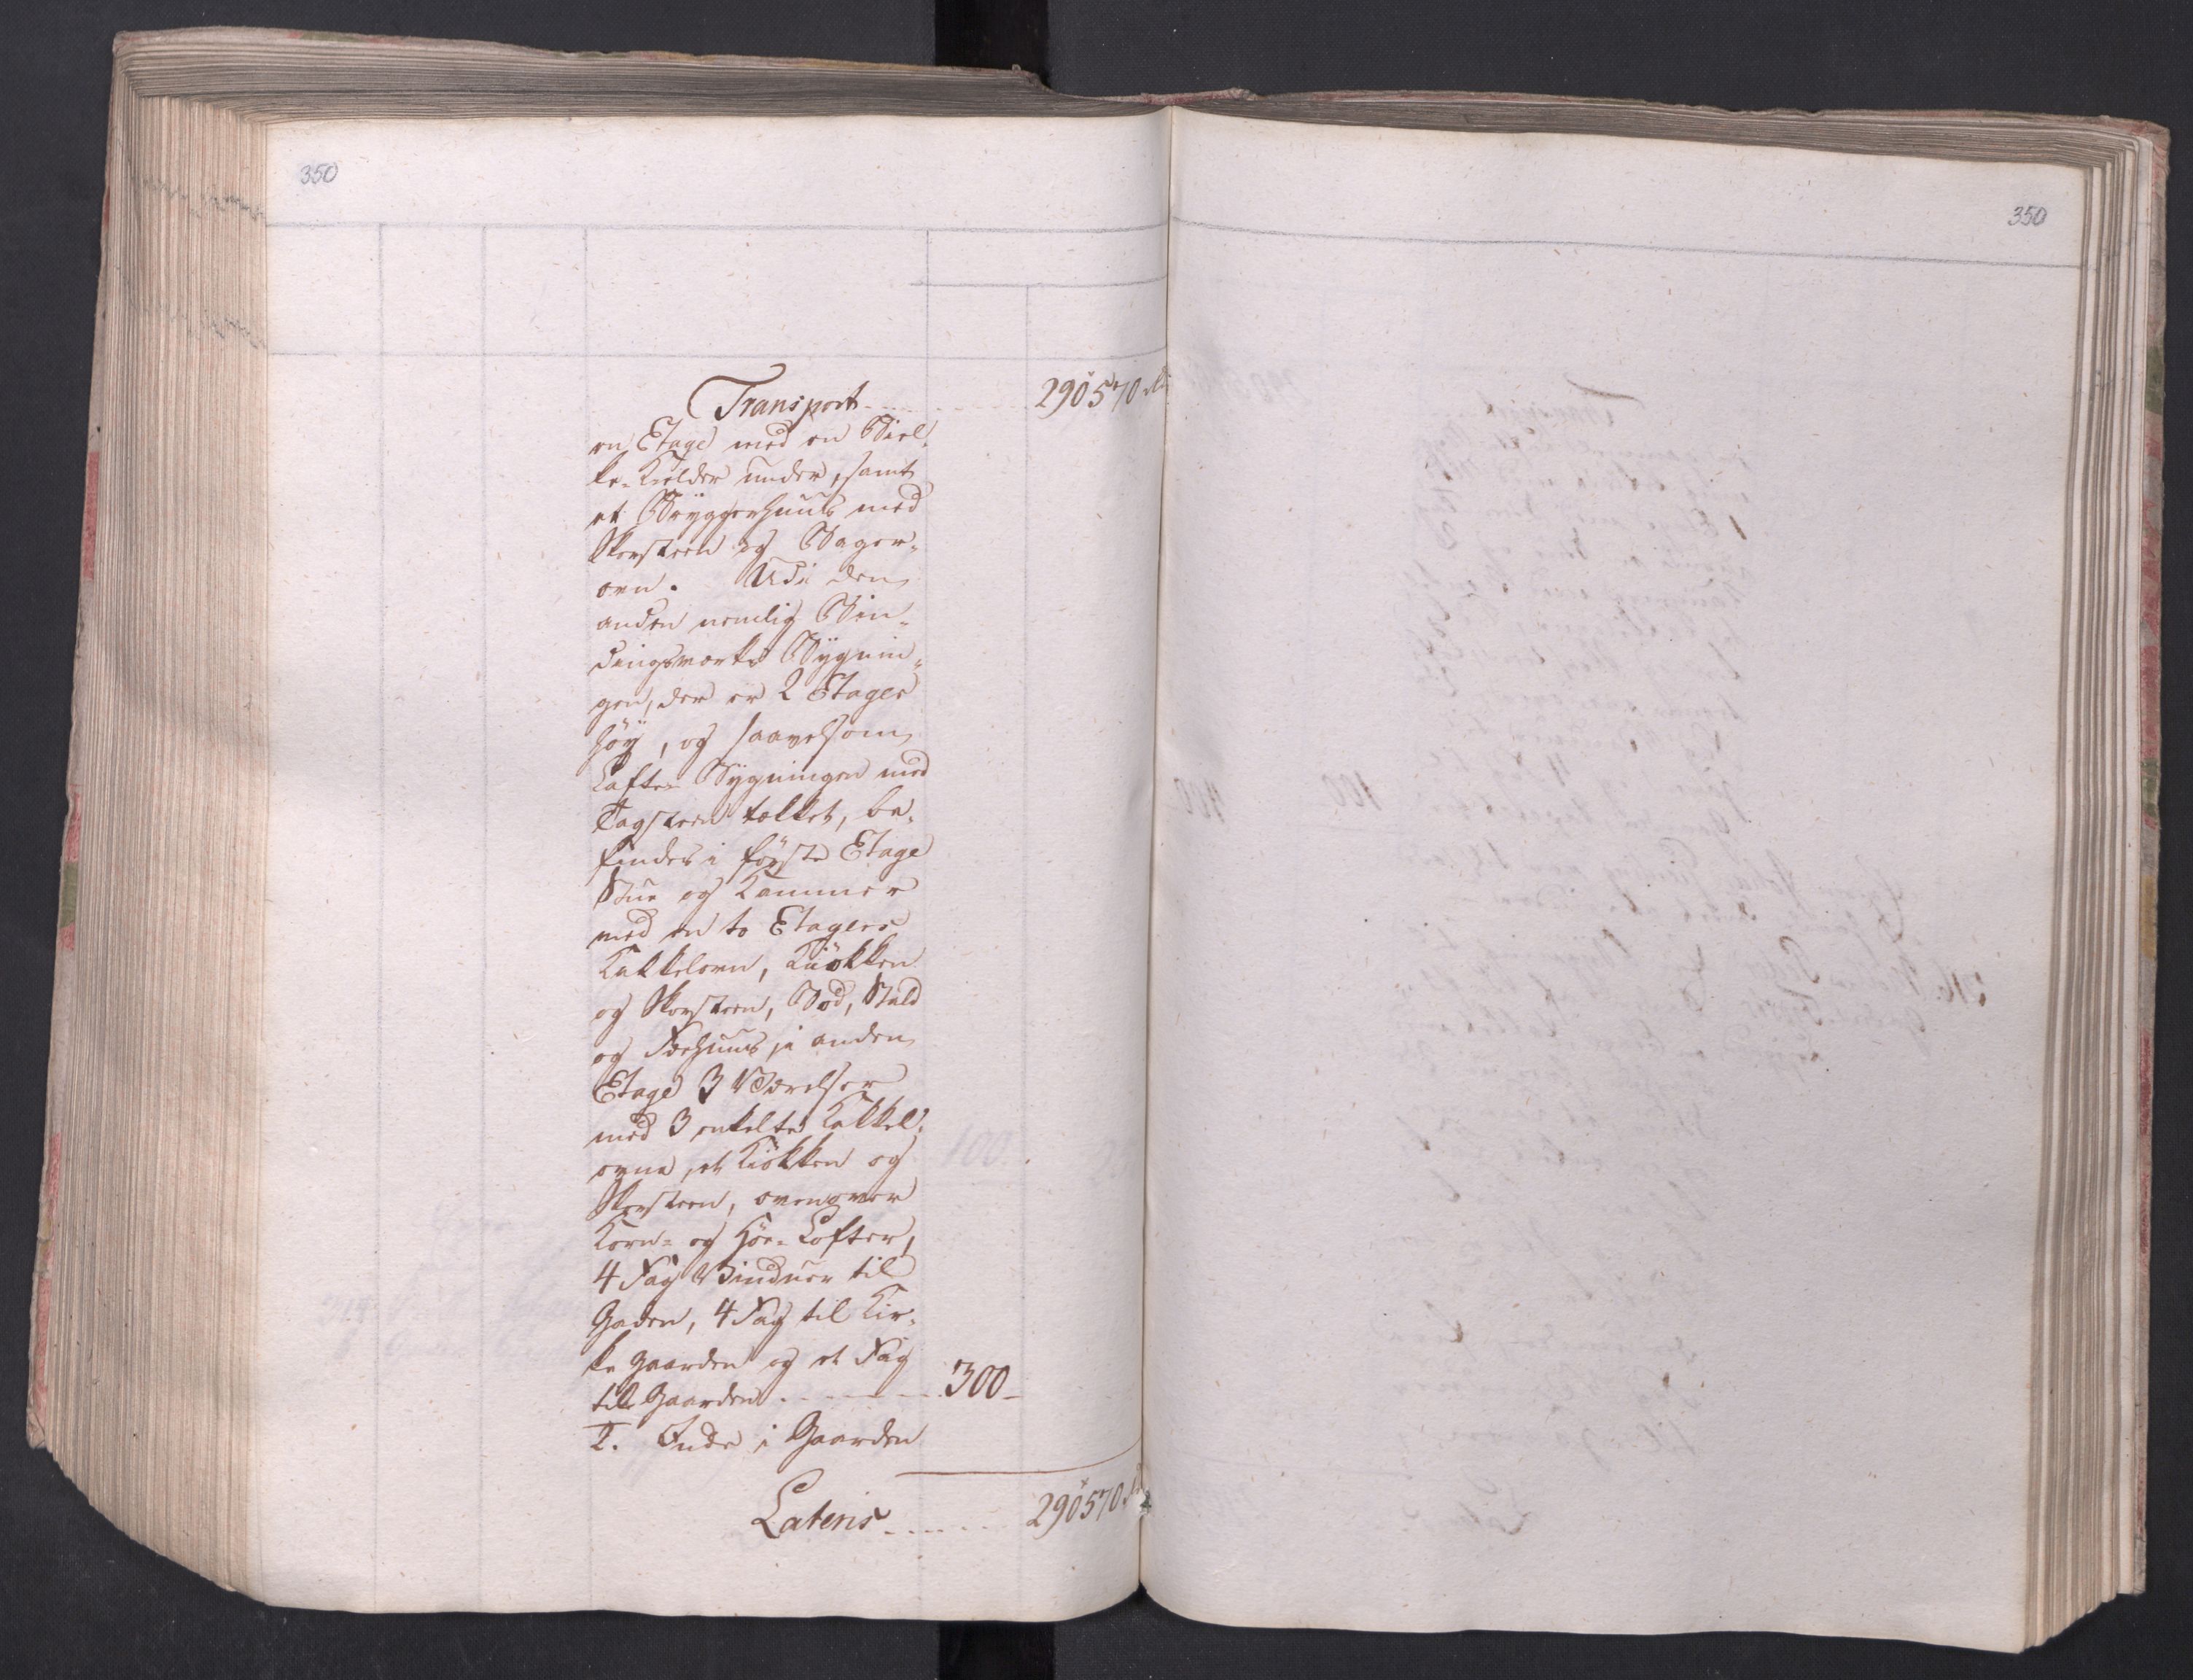 350
350
Transport - - - - 290570 rd
en Etage med en Biel-
ke-Kielder under, samt
et Bryggerhuus med
Skorsteen og Bager-
ovn. Udi den
anden nemlig Bin-
dingsværks Bygnin-
gen, der er 2 Etager
høy, og saavelsom
Lafte-Bygningen med
Tagsteen tækket, be-
findes i første Etage
Stue og Kammer
med en to Etagers
Kakkelovn, Kiøkken
og Skorsteen, Bod, Stald
og Fæehuus, i anden
Etage 3 Værelser
med 3 enkelte Kakkel-
ovne, et Kiøkken og
Skorsteen, ovenover
Korn- og Høe-Lofter,
4 Fag Vinduer til
Gaden, 4 Fag til Kir-
ke Gaarden og et Fag
til Gaarden - - - - 300 -
2. Inde i Gaarden
Lateris - - - - 290570 rd